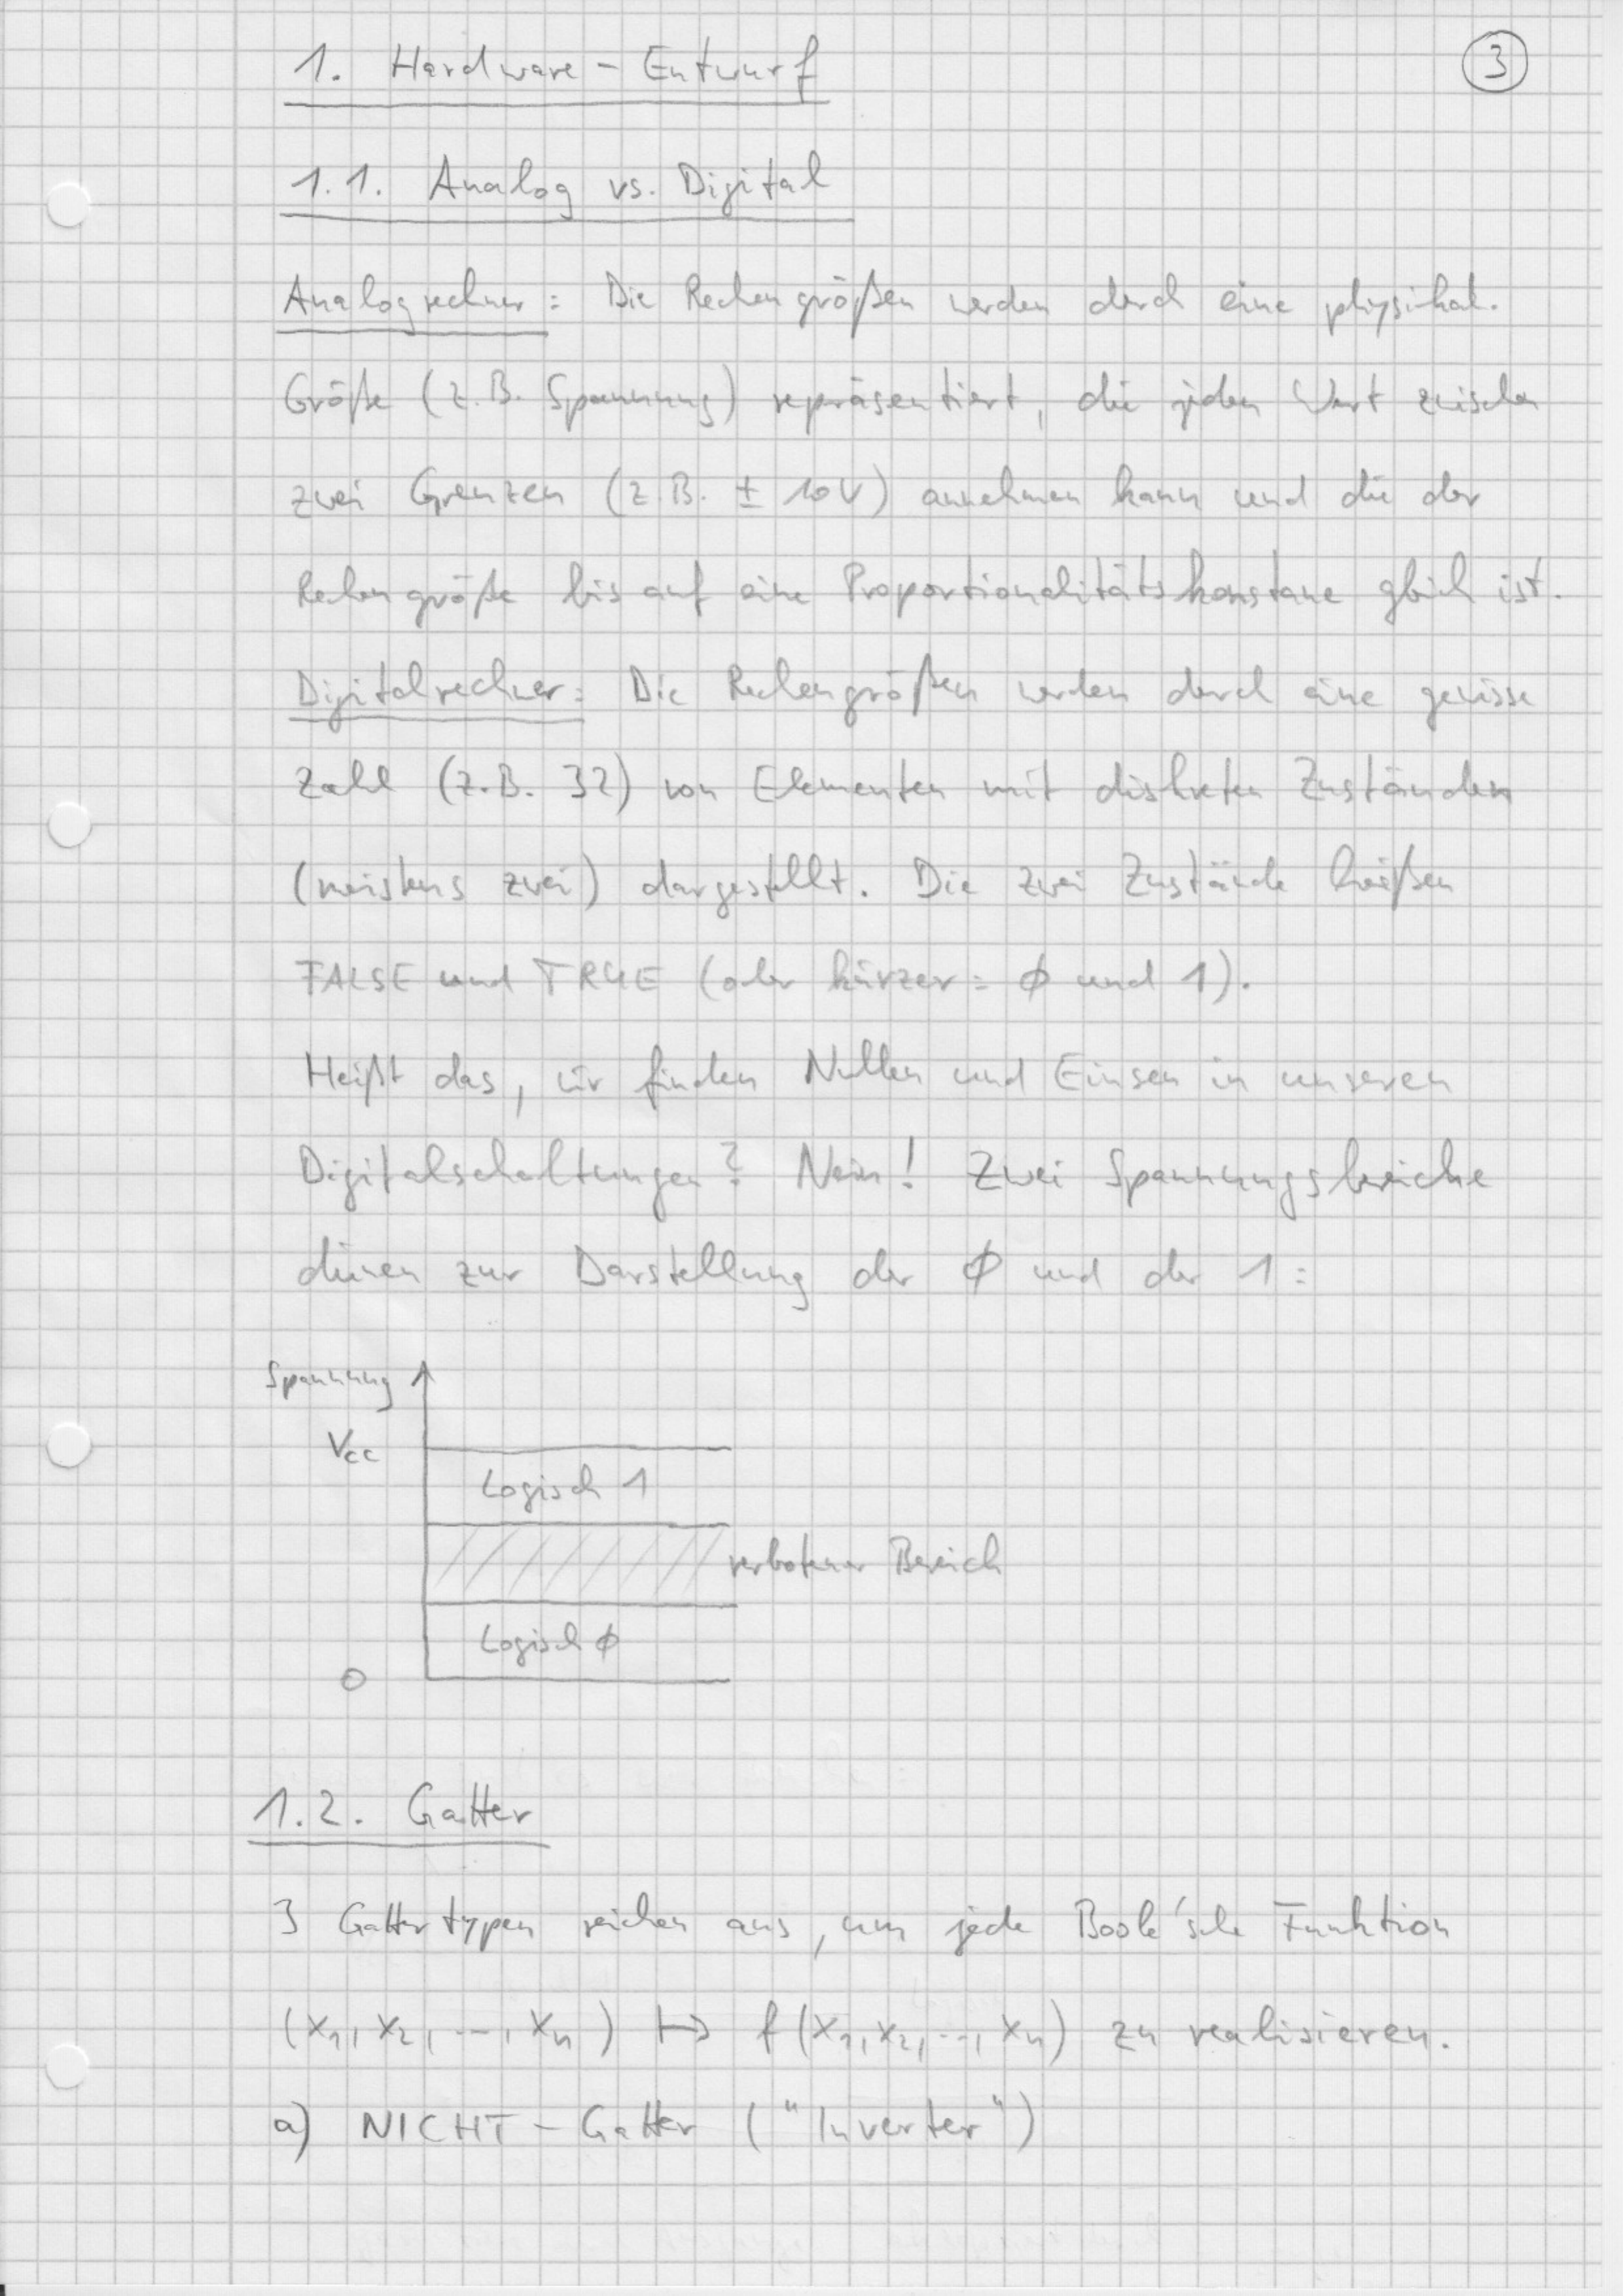 1. Hardware - Entwurf
3
1.1. Analog vs. Digital
Analogrechner: Die Rechengrößen werden durch eine physikal.
Größe (z.B. Spannung) repräsentiert, die jeden Wert zwischen
zwei Grenzen (z.B. ± 10V) annehmen kann und die der
Rechengröße bis auf eine Proportionalitätskonstante gleich ist.
Digitalrechner: Die Rechengrößen werden durch eine gewisse
Zahl (z.B. 32) von Elementen mit diskreten Zuständen
(meistens zwei) dargestellt. Die zwei Zustände heißen
FALSE und TRUE (oder kürzer: ϕ und 1).
Heißt das, wir finden Nullen und Einsen in unseren
Digitalschaltungen? Nein! Zwei Spannungsbereiche
dienen zur Darstellung der ϕ und der 1:
Spannung
Vcc
Logisch 1
verbotener Bereich
Logisch ϕ
0
1.2. Gatter
3 Gattertypen reichen aus, um jede Boole'sche Funktion
(x₁, x₂, ..., xₙ) ↦ f(x₁, x₂, ..., xₙ) zu realisieren.
a) NICHT - Gatter ("Inverter")